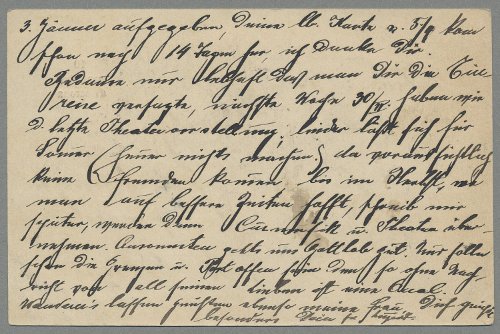 3. Jänner aufgegeben, Deine lb. Karte v. 5/8 kam
schon nach 14 Tagen her, ich danke Dir.
Bedaure nur lebhaft daß man Dir die Ein
reise versagte, nächste Woche 30/ haben wir
d. letzte Theatervorstellung, leider läßt sich für
Sommer (heuer nichts machen) da voraussichtlich
keine Fremden kommen, bis im Herbst, wo
man auf bessere Zeiten hofft, schreib mir
später, werden dann Curmusik u. Theater über-
nehmen. Anverwandten geht uns Gottlob gut. Nur sollen
schon die Grenzen u. Post offen sein denn so ohne Nach
richt von all seinen Lieben ist eine Qual.
lassen grüßen ebenso meine Frau Dich grüßt
besonders Dein